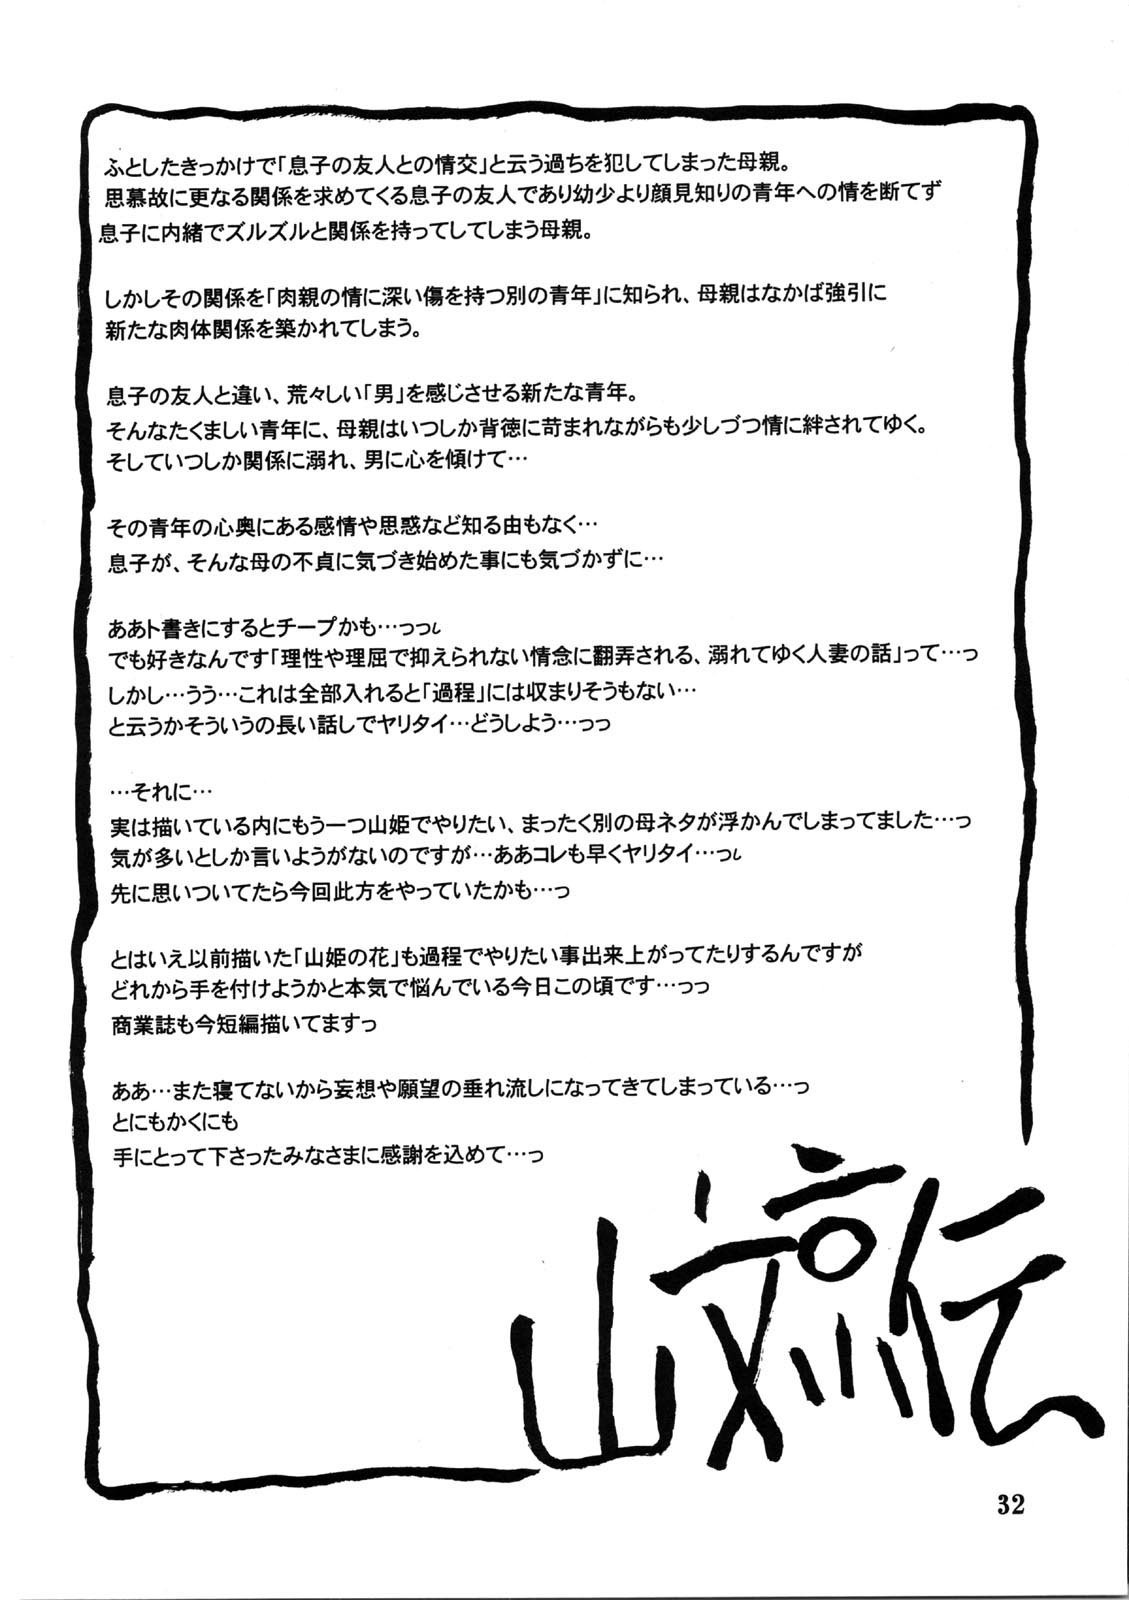 ふとしたきっかけで「息子の友人との情交」と云う過ちを犯してしまった母親。
思慕故に更なる関係を求めてくる息子の友人であり幼少より顔見知りの青年への情を断てず
息子に内緒でズルズルと関係を持ってしてしまう母親。
しかしその関係を「肉親の情に深い傷を持つ別の青年」に知られ、母親はなかば強引に
新たな肉体関係を築かれてしまう。
息子の友人と違い、荒々しい「男」を感じさせる新たな青年。
そんなたくましい青年に、母親はいつしか背徳に苛まれながらも少しづつ情に絆されてゆく。
そしていつしか関係に溺れ、男に心を傾けて…
その青年の心奥にある感情や思惑など知る由もなく…
息子が、そんな母の不貞に気づき始めた事にも気づかずに…
ああト書きにするとチープかも…っっし
でも好きなんです「理性や理屈で抑えられない情念に翻弄される、溺れてゆく人妻の話」って…っ
しかし…うう…これは全部入れると「過程」には収まりそうもない…
と云うかそういうの長い話しでヤリタイ…どうしよう…っっ
…それに…
実は描いている内にもう一つ山姫でやりたい、まったく別の母ネタが浮かんでしまってました…っ
気が多いとしか言いようがないのですが…ああコレも早くヤリタイ…っし
先に思いついてたら今回此方をやっていたかも…っ
とはいえ以前描いた「山姫の花」も過程でやりたい事出来上がってたりするんですが
どれから手を付けようかと本気で悩んでいる今日この頃です…っっ
商業誌も今短編描いてますっ
ああ…また寝てないから妄想や願望の垂れ流しになってきてしまっている…っ
とにもかくにも
手にとって下さったみなさまに感謝を込めて…っ
山文京伝
32